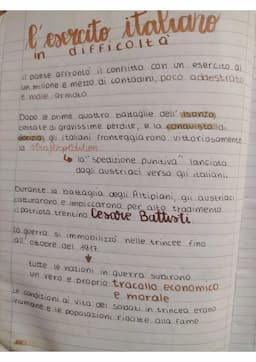 l'esercito italiano
in difficoltà
il paese affrontò il conflitto con un esercito di
un milione e mezzo di contadini, poco addestrato
e male armato
Dopo le prime quattro battaglie dell'Isonzo,
costate di gravissime perdite, e la conquista di
Gorizia, gli italiani fronteggiarono vittoriosamente
la Strafexpedition
la "spedizione punitiva" lanciata
dagli austriaci verso gli italiani.
Durante la battaglia degli Altipiani, gli austriaci
catturarono e impiccarono per alto tradimento
il patriota trentino Cesare Battisti.
La guerra si immobilizzò nelle trincee fino
all'ottobre del 1917
tutte le nazioni in guerra subirono
un vero e proprio tracollo economico
e morale
Le condizioni di vita dei soldati in trincea erano
inumane e le popolazioni ridotte alla fame